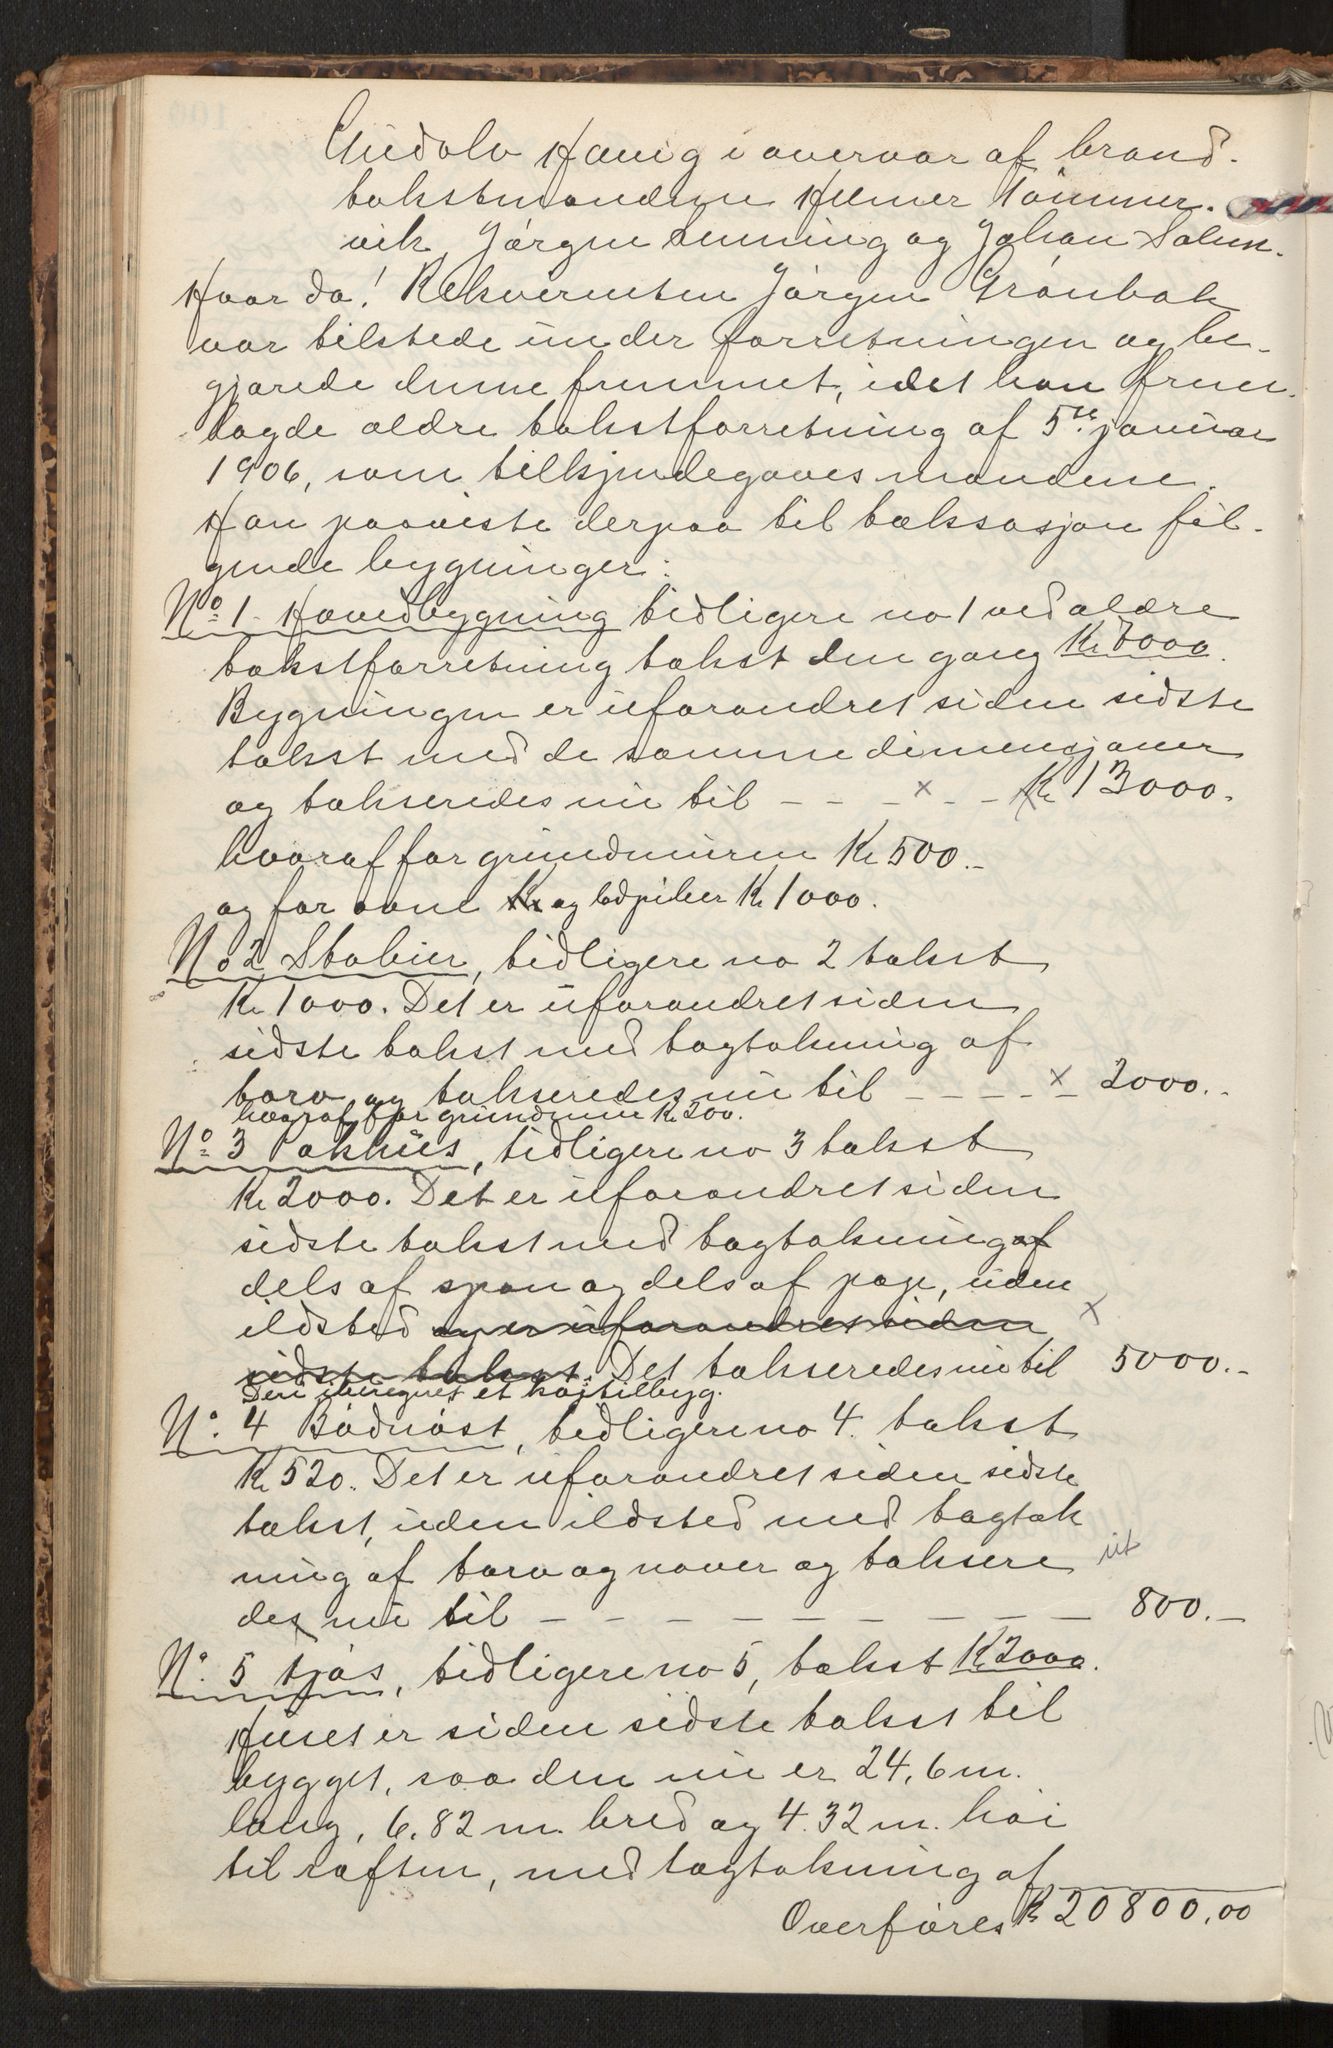 Gudolv Haug i overvær af brand-
takstmændene Hilmer Tömmer-
vik, Jörgen Lenning og Johan Solem.
Hvor da! Rekvirenten Jörgen Grönbæk
var tilstede under forretningen og be-
gjærede denne fremmet, idet han frem-
lagde ældre takstforretning af 5te januar
1906, som tilkjendegaves mændene.
Han paaviste derpaa til taksasjon föl-
gende bygninger:
No 1. Hovedbygning tidligere no 1 ved ældre
takstforretning takst den gang Kr 7000.
Bygningen er uforandret siden sidste
takst med de samme dimensjoner
og takseredes nu til - - - x - - Kr 13000.
hvoraf for grundmuren Kr 500.-
og for ovne Kr og ledpiber Kr 1000.
No 2 Stabur, tidligere no 2 takst
Kr 1000. Det er uforandret siden
sidste takst med tagtækning af
torv og takseredes nu til - - - - x - 2000.-
hvoraf for grundmur Kr 200.
No 3 Pakhus, tidligere no 3 takst
Kr 2000. Det er uforandret siden
sidste takst med tagtækning af
dels af spon og dels af pap, uden
ildsted og er uforandret siden x
sidste takst. Det takseredes nu til 5000.-
Deri iberegnet et kaitilbyg.
No. 4 Bådnöst, tidligere no 4. takst
Kr 520. Det er uforandret siden sidste
takst, uden ildsted med tagtæk
ning af torv og næver og taksere ut
des nu til - - - - - - - - - 800.-
No. 5 fjös, tidligere no 5, takst Kr 2000.
Huset er siden sidste takst til
bygget, saa den nu er 24,6 m.
lang, 6.82 m. bred og 4.32 m. höi
til raften, med tagtækning af
Overföres Kr 20800.00